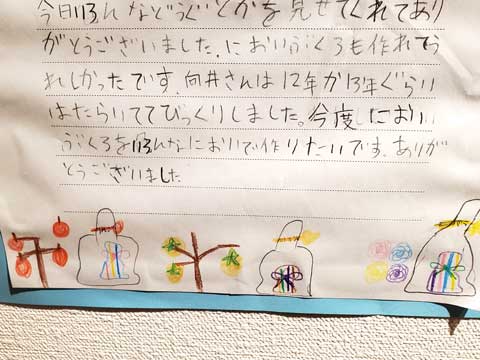 今日いろんなどうぐとかを見せてくれてあり
がとうございました。においぶくろも作れてう
れしかったです。向井さんは12年か13年ぐらい
はたらいててびっくりしました。今度においい
ぶくろをいろんなにおいで作りたいです。ありが
とうございました